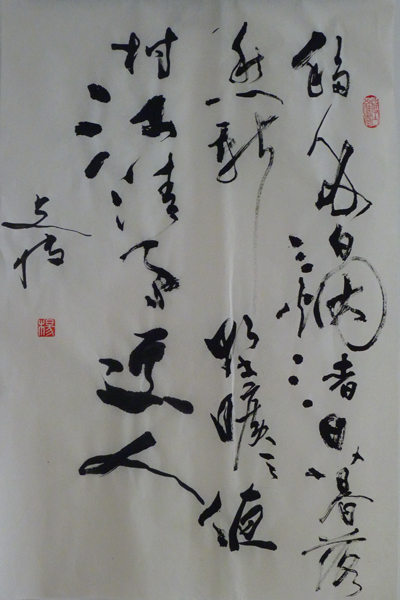 移舟泊烟渚日暮客
愁新野旷天低
树江清月近人
楊